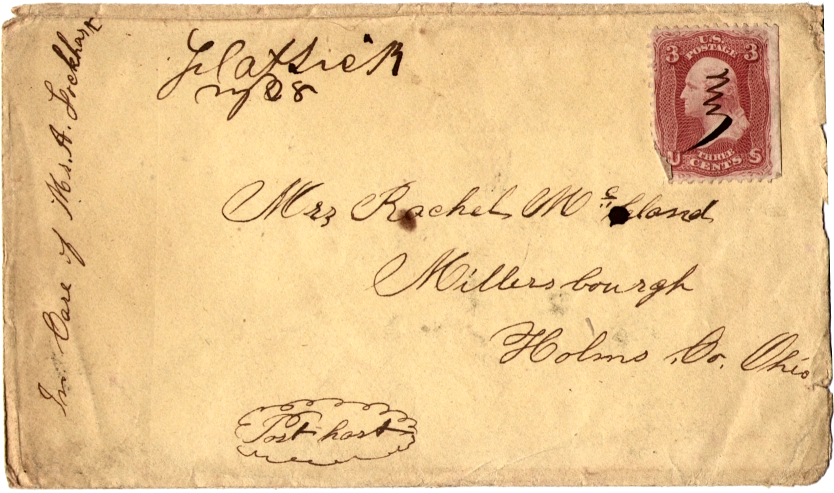 In Care of Ms. A. Lockhart
28
3 U.S. POSTAGE 3
THREE
U CENTS S
Mrs Rachel Mc Cleland
Millersbourgh
Holms Co. Ohio
Post hast